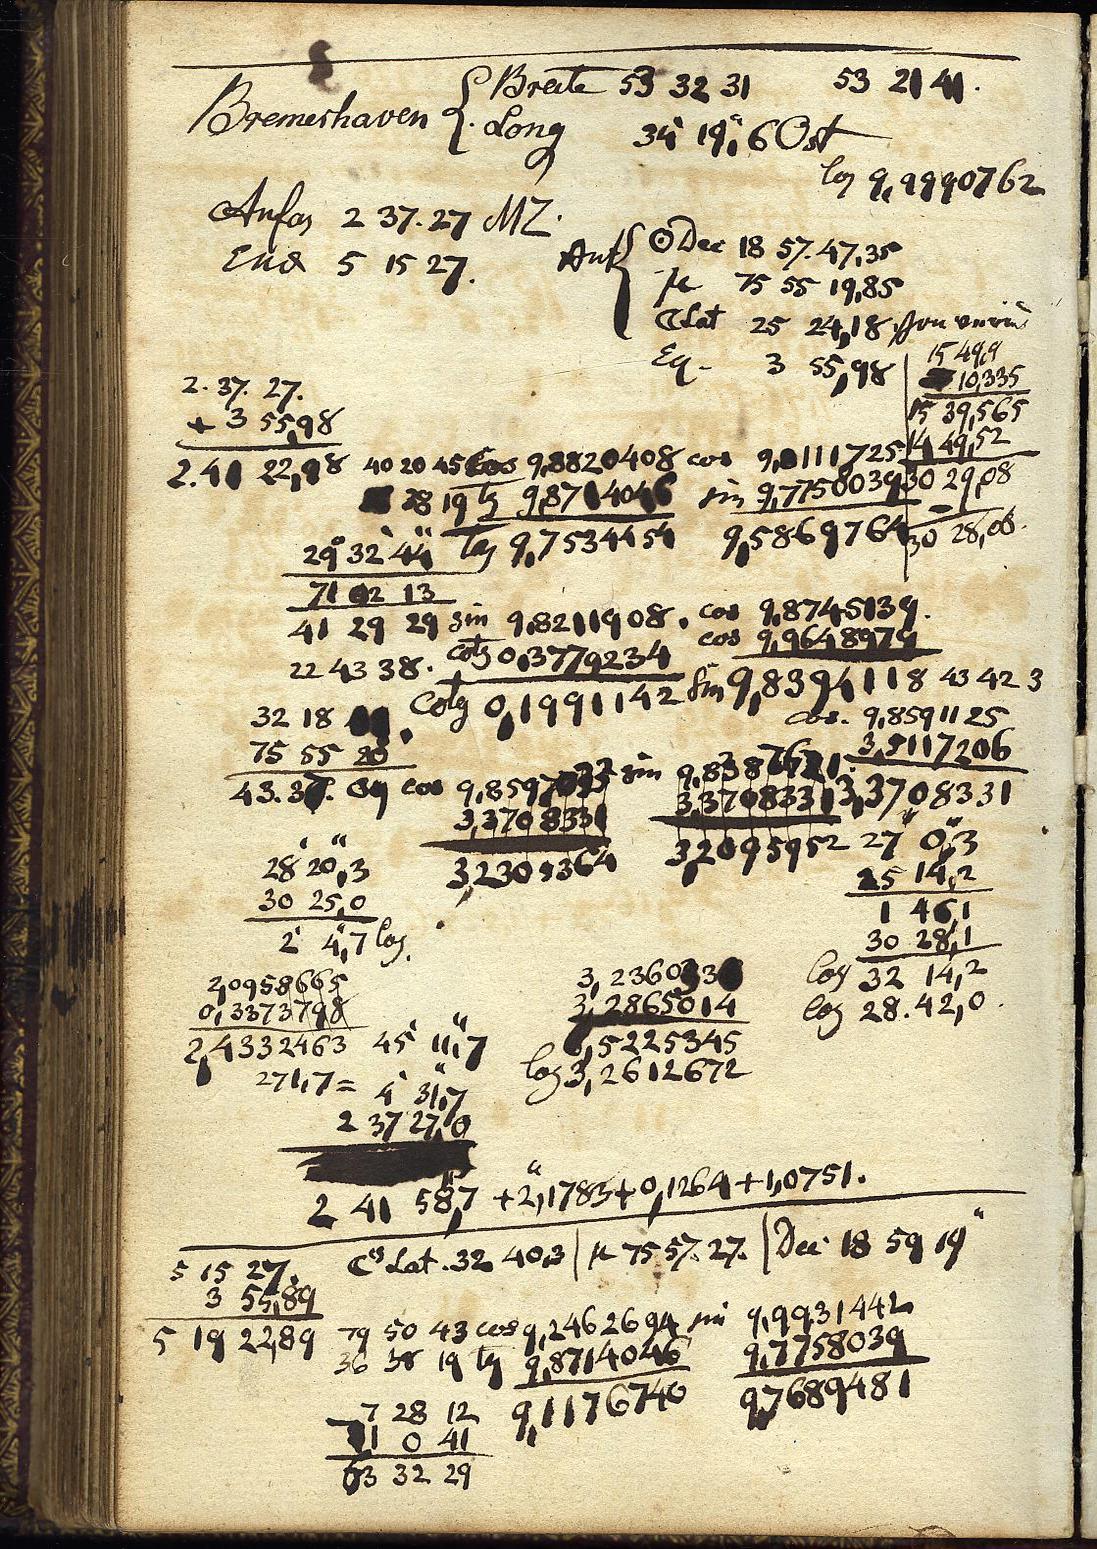 Bremerhaven { Breite 53 32 31 53 21 41.
Long 34' 19",6 Ost
log 9,9990762
Anfag 2 37. 27 MZ.
End 5 15 27.
Anf { ⊙ Dec 18 57. 47,35
75 55 19,85
☾ Lat 25 24,18
Eq. 3 55,98
15 49,9
10,335
15 39,565
14 49,52
30 29,08
30 28,08.
2. 37. 27.
+ 3 55,98
2. 41 22,98 40 20 45 cos 9,8820408 cos 9,9111725
28 19 tg 9,8714046 sin 9,7758039
29° 32' 44" tg 9,7534454 9,5869764
71 02 13
41 29 29 sin 9,8211908. cos 9,8745139.
22 43 38. cotg 0,3779234 cos 9,9648979
Cotg 0,1991142 Sin 9,8394118 43 42 3
32 18
cos. 9,8591125
75 55 20
3,5117206
43. 37. cos 9,8597 sin 9,838 3,3708331
3,3708331 3,3708331
3,2309364 3,2095952 27' 0",3
28' 20",3 25 14,2
30 25,0 1 46,1
2' 4,7 log. 30 28,1
2,0958665 3,2360 log 32 14,2
0,3373798 3,2865014 log 28. 42,0.
2,4332463 45' 11",7 6,5225345
271,7 = 4' 31",7 log 3,2612672
2 37 27,0
2 41 58,7 + 2",1783 + 0,1264 + 1,0751.
5 15 27. ☾s Lat. 32 40,3 | 75 57. 27. | Dec 18 59 19"
3 55,89
5 19 22,89 79 50 43 cos 9,2462694 sin 9,9931442
36 38 19 tg 9,8714046 9,7758039
7 28 12 9,1176740 9,7689481
71 0 41
63 32 29